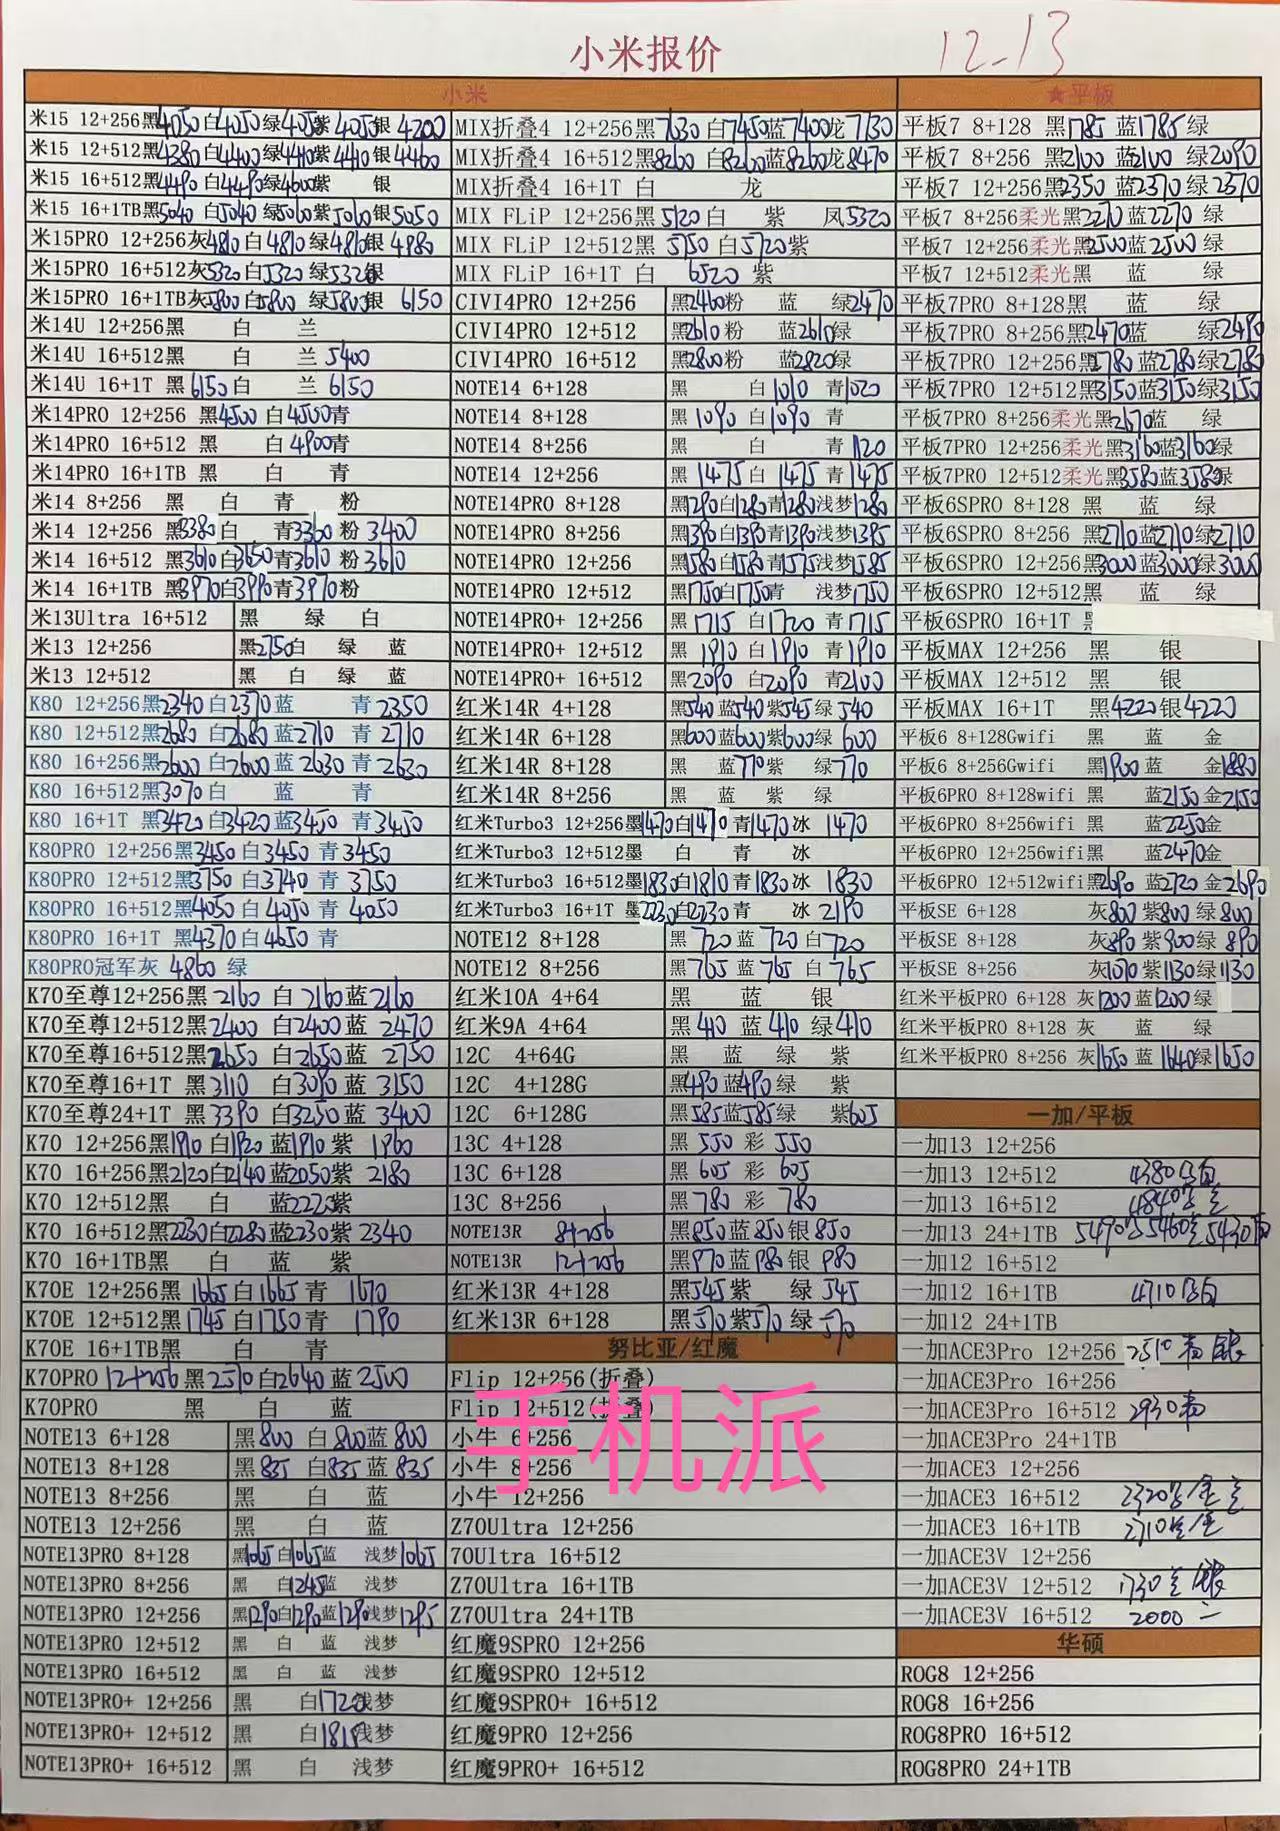 小米报价
12-13
小米
米15 12+256黑4050白4050绿4050紫4050银4200
米15 12+512黑4380白4400绿4410紫4410银4460
米15 16+512黑4490白4490绿4600紫 银
米15 16+1TB黑5040 白5040 绿5060紫5060银5050
米15PRO 12+256灰4810白4810绿4810银4980
米15PRO 16+512灰5320白5320绿5320银
米15PRO 16+1TB灰5800白5800 绿5800银 6150
米14U 12+256黑 白 兰
米14U 16+512黑 白 兰5400
米14U 16+1T 黑6150白 兰 6150
米14PRO 12+256 黑4500 白4500青
米14PRO 16+512 黑 白4900青
米14PRO 16+1TB 黑 白 青
米14 8+256 黑 白 青 粉
米14 12+256 黑3380白 青3360粉 3400
米14 16+512 黑3610白3650青3610粉3610
米14 16+1TB 黑3970白3990青3970粉
米13Ultra 16+512 黑 绿 白
米13 12+256 黑2750白 绿 蓝
米13 12+512 黑 白 绿 蓝
K80 12+256黑2340白2370蓝 青2350
K80 12+512黑2680白2680蓝2710青2710
K80 16+256黑2600白2600蓝2630青2630
K80 16+512黑3070白 蓝 青
K80 16+1T 黑3420白3420蓝3450青3450
K80PRO 12+256黑3450白3450青3450
K80PRO 12+512黑3750白3740青3750
K80PRO 16+512黑4050白4050青4050
K80PRO 16+1T 黑4370白4650青
K80PRO冠军灰 4860 绿
K70至尊12+256黑2160 白2160蓝2160
K70至尊12+512黑2400 白2400蓝 2470
K70至尊16+512黑2650 白2650蓝 2750
K70至尊16+1T 黑3110 白3090蓝 3150
K70至尊24+1T 黑3390 白3250蓝 3400
K70 12+256黑1910白1920蓝1910紫 1960
K70 16+256黑2120白2140蓝2050紫 2180
K70 12+512黑 白 蓝2220紫
K70 16+512黑2230白2280蓝2230紫 2340
K70 16+1TB黑 白 蓝 紫
K70E 12+256黑1665白1665青 1670
K70E 12+512黑1745白1750青 1790
K70E 16+1TB黑 白 青
K70PRO 12+256黑2510白2640蓝2500
K70PRO 黑 白 蓝
NOTE13 6+128 黑800 白800蓝 800
NOTE13 8+128 黑835 白835蓝 835
NOTE13 8+256 黑 白 蓝
NOTE13 12+256 黑 白 蓝
NOTE13PRO 8+128 黑1065白1065蓝 浅梦1065
NOTE13PRO 8+256 黑 白1245蓝 浅梦
NOTE13PRO 12+256 黑1290白1290蓝1290浅梦1295
NOTE13PRO 12+512 黑 白 蓝 浅梦
NOTE13PRO 16+512 黑 白 蓝 浅梦
NOTE13PRO+ 12+256 黑 白1720浅梦
NOTE13PRO+ 12+512 黑 白1810浅梦
NOTE13PRO+ 16+512 黑 白 浅梦
MIX折叠4 12+256黑7630白7450蓝7400龙7130
MIX折叠4 16+512黑8260 白8260蓝8260龙8470
MIX折叠4 16+1T 白 龙
MIX FLiP 12+256黑5120白 紫 凤5320
MIX FLiP 12+512黑 5750 白5720紫
MIX FLiP 16+1T 白 6520 紫
CIVI4PRO 12+256 黑2460粉 蓝 绿2470
CIVI4PRO 12+512 黑2610粉 蓝2610绿
CIVI4PRO 16+512 黑2800粉 蓝2820绿
NOTE14 6+128 黑 白1010 青1020
NOTE14 8+128 黑1090 白1090 青
NOTE14 8+256 黑 白 青1120
NOTE14 12+256 黑1475白 1475青1475
NOTE14PRO 8+128 黑1290白1280青1280浅梦1280
NOTE14PRO 8+256 黑1390白1390青1390浅梦1395
NOTE14PRO 12+256 黑1580白1580青1575浅梦1585
NOTE14PRO 12+512 黑1750白1750青 浅梦1750
NOTE14PRO 16+512 黑1715 白1720 青1715
NOTE14PRO+ 12+512 黑 1910白1910 青1910
NOTE14PRO+ 16+512 黑2090 白2090 青2100
红米14R 4+128 黑540蓝540紫545绿 540
红米14R 6+128 黑600蓝600紫600绿 600
红米14R 8+128 黑 蓝770紫 绿770
红米14R 8+256 黑 蓝 紫 绿
红米Turbo3 12+256墨1470白1470青1470冰 1470
红米Turbo3 12+512墨 白 青 冰
红米Turbo3 16+512墨1830白1810青1830冰 1830
红米Turbo3 16+1T 墨2230白2230青 冰 2190
NOTE12 8+128 黑 720蓝 720白720
NOTE12 8+256 黑765 蓝765 白 765
红米10A 4+64 黑 蓝 银
红米9A 4+64 黑410 蓝410 绿410
12C 4+64G 黑 蓝 绿 紫
12C 4+128G 黑490蓝490绿 紫
12C 6+128G 黑585蓝585绿 紫605
13C 4+128 黑 550 彩 550
13C 6+128 黑 605 彩 605
13C 8+256 黑780 彩 780
NOTE13R 8+256 黑850蓝850银850
NOTE13R 12+256 黑970蓝980银 980
红米13R 4+128 黑545紫 绿 545
红米13R 6+128 黑570紫570绿 570
努比亚/红魔
Flip 12+256(折叠)
Flip 12+512(折叠)
手机派
小牛 6+256
小牛 8+256
小牛 12+256
Z70Ultra 12+256
70Ultra 16+512
Z70Ultra 16+1TB
Z70Ultra 24+1TB
红魔9SPRO 12+256
红魔9SPRO 12+512
红魔9SPRO+ 16+512
红魔9PRO 12+256
红魔9PRO+ 16+512
★平板
平板7 8+128 黑1785 蓝1785 绿
平板7 8+256 黑2100 蓝2100 绿2090
平板7 12+256黑2350 蓝2370绿2370
平板7 8+256柔光黑2270蓝2270 绿
平板7 12+256柔光黑2500蓝2500 绿
平板7 12+512柔光黑 蓝 绿
平板7PRO 8+128黑 蓝 绿
平板7PRO 8+256黑2470蓝 绿2490
平板7PRO 12+256黑2780蓝2780绿2780
平板7PRO 12+512黑3150蓝3150绿3150
平板7PRO 8+256柔光黑2670蓝 绿
平板7PRO 12+256柔光黑3160蓝3160绿
平板7PRO 12+512柔光黑3580蓝3580绿
平板6SPRO 8+128 黑 蓝 绿
平板6SPRO 8+256 黑2710蓝2710绿2710
平板6SPRO 12+256黑3000蓝3000绿3000
平板6SPRO 12+512黑 蓝 绿
平板6SPRO 16+1T
平板MAX 12+256 黑 银
平板MAX 12+512 黑 银
平板MAX 16+1T 黑4220银4220
平板6 8+128Gwifi 黑 蓝 金
平板6 8+256Gwifi 黑1900蓝 金1880
平板6PRO 8+128wifi 黑 蓝2150金2150
平板6PRO 8+256wifi 黑 蓝2250金
平板6PRO 12+256wifi黑 蓝2470金
平板6PRO 12+512wifi黑2690蓝2720金2690
平板SE 6+128 灰800紫800绿800
平板SE 8+128 灰890紫900绿890
平板SE 8+256 灰1070紫1130绿1130
红米平板PRO 6+128 灰1200蓝1200绿
红米平板PRO 8+128 灰 蓝 绿
红米平板PRO 8+256 灰1650蓝1640绿1650
一加/平板
一加13 12+256
一加13 12+512 4380
一加13 16+512 4840
一加13 24+1TB 5490 5460 5430
一加12 16+512
一加12 16+1TB 4710
一加12 24+1TB
一加ACE3Pro 12+256 2510 银
一加ACE3Pro 16+256
一加ACE3Pro 16+512 2930
一加ACE3Pro 24+1TB
一加ACE3 12+256
一加ACE3 16+512 2320
一加ACE3 16+1TB 2710
一加ACE3V 12+256
一加ACE3V 12+512 1730 银
一加ACE3V 16+512 2000
华硕
ROG8 12+256
ROG8 16+256
ROG8PRO 16+512
ROG8PRO 24+1TB